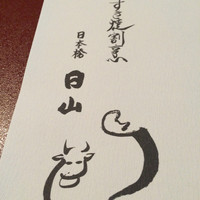 すき焼割烹
日本橋
日山